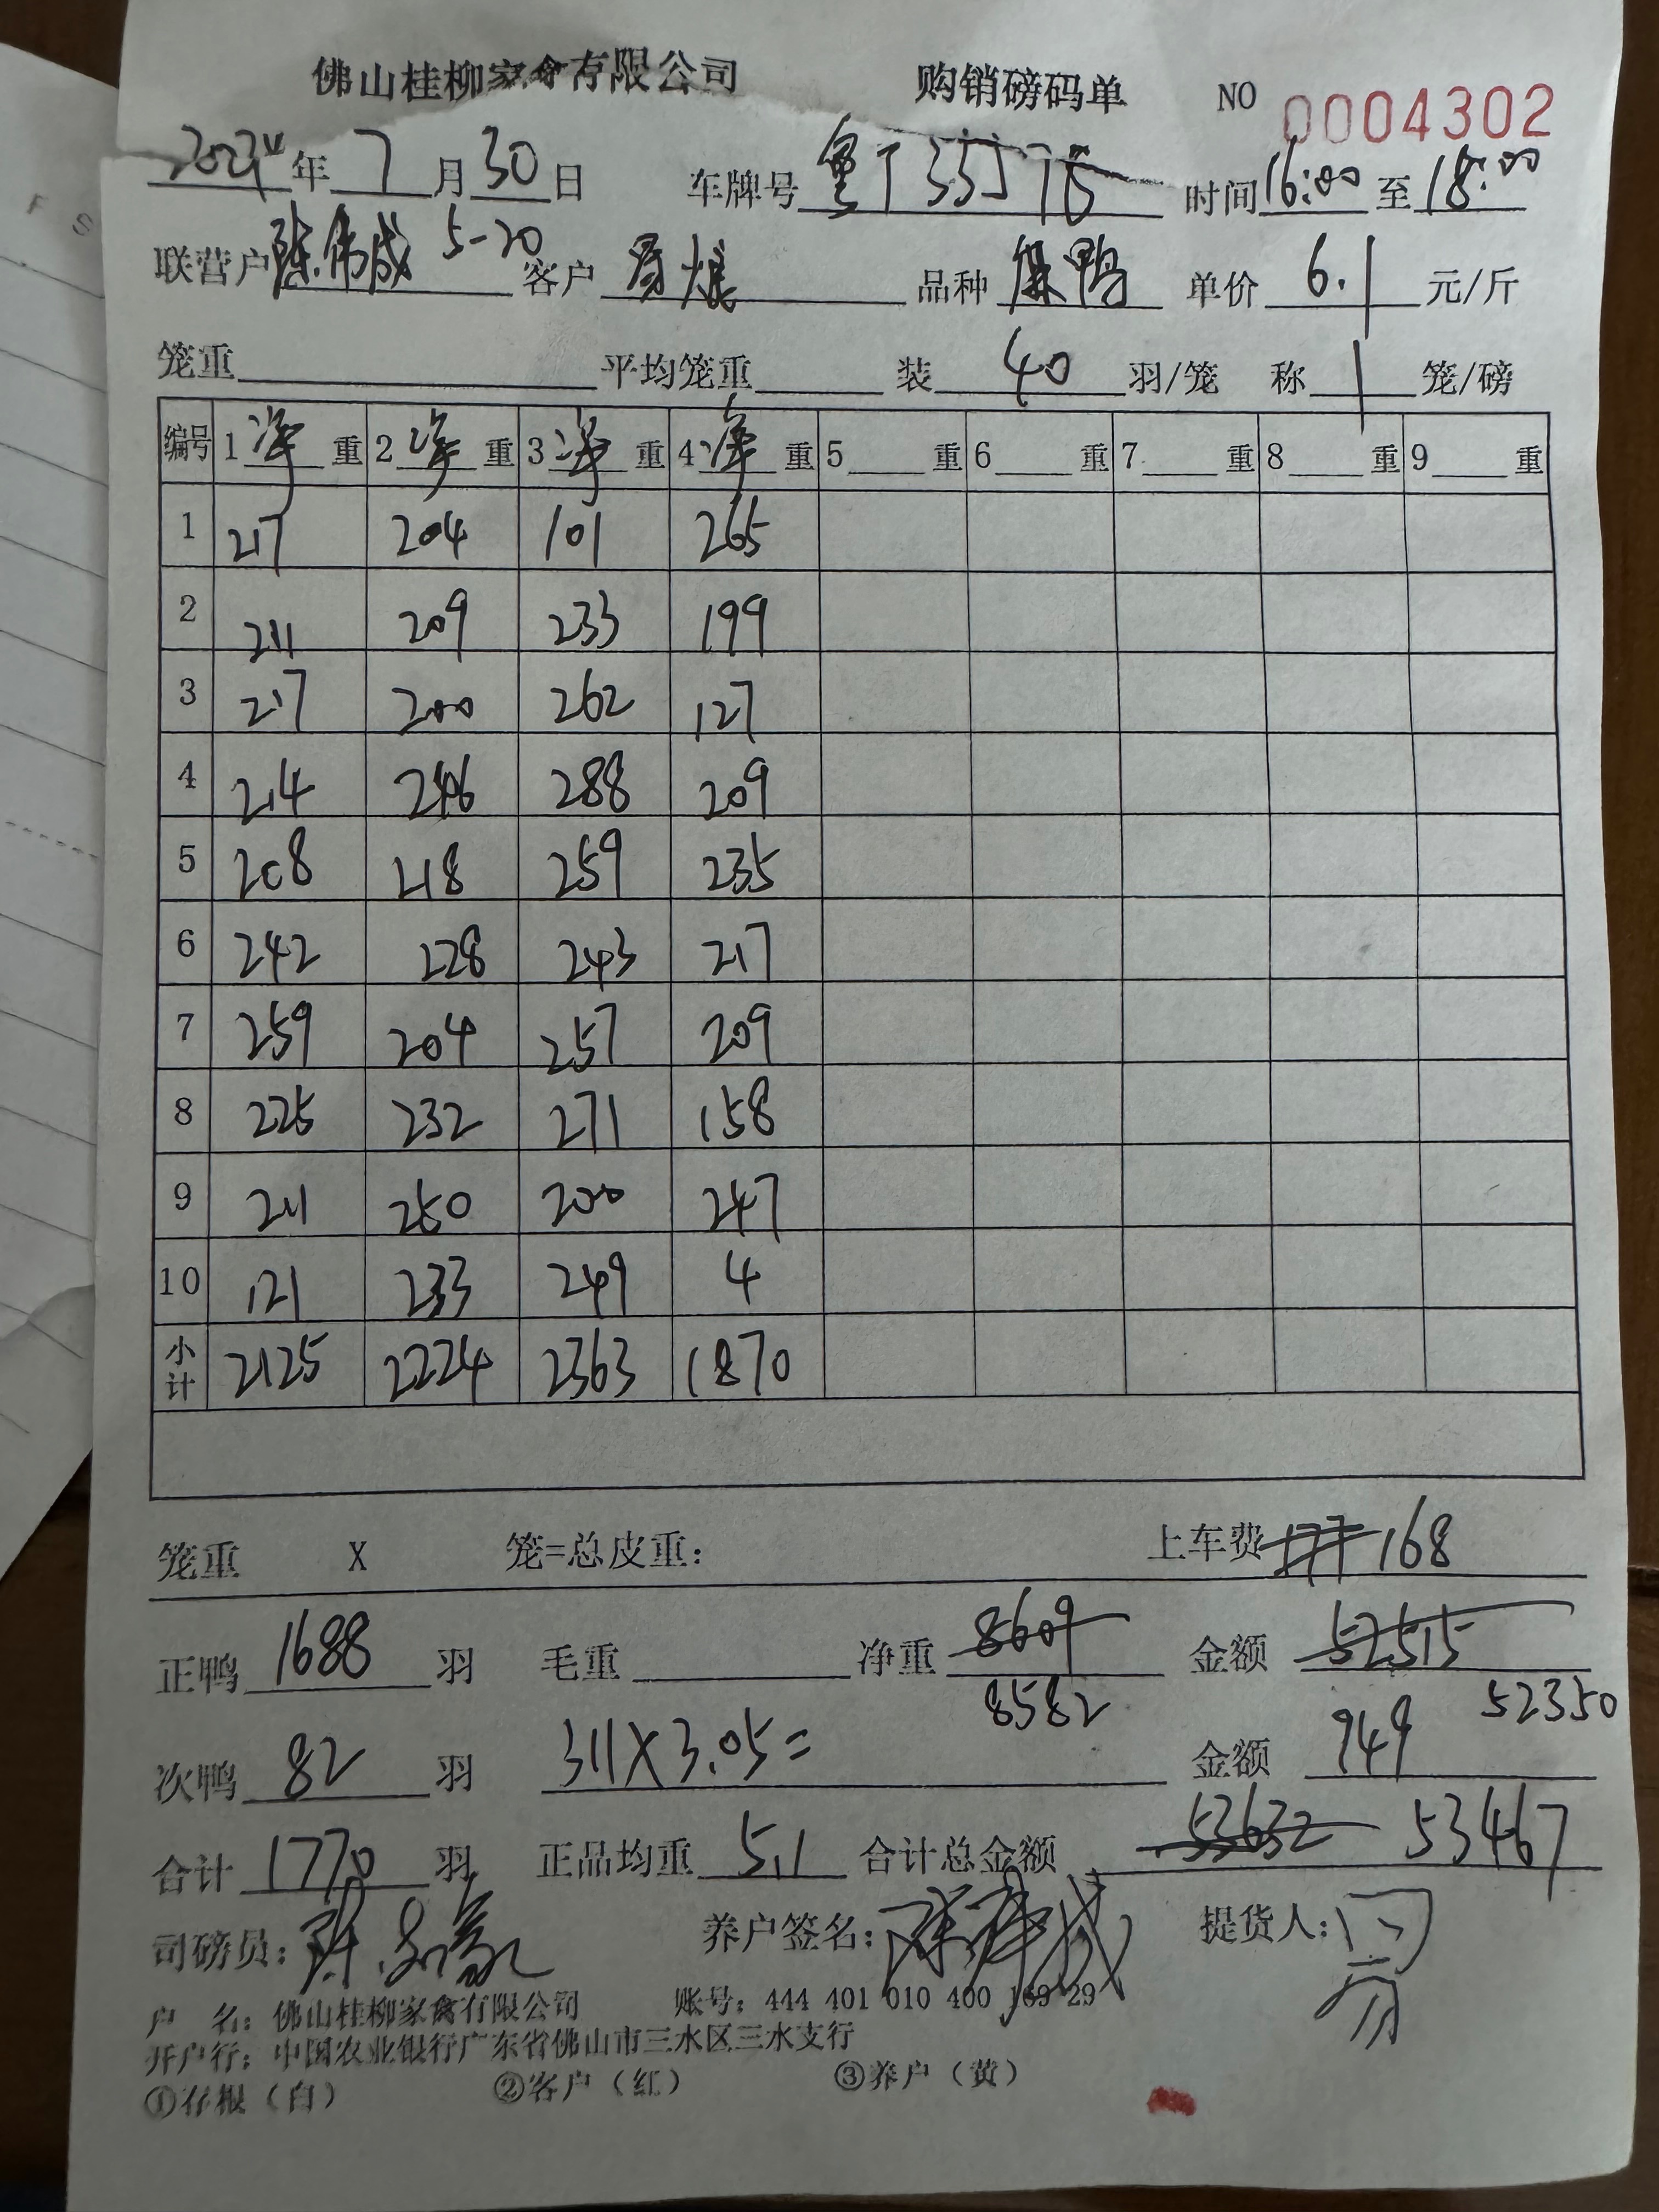 佛山桂柳家禽有限公司 购销磅码单 NO 0004302
2024年7月30日 车牌号 粤T35J76 时间16:00至18:00
联营户 陈伟成 5-20 客户 品种 麻鸭 单价 6.1 元/斤
笼重 平均笼重 装 40 羽/笼 称 1 笼/磅
编号 1 净 重 2 净 重 3 净 重 4 净 重 5 重 6 重 7 重 8 重 9 重
1 217 204 101 265
2 211 209 233 199
3 217 200 262 127
4 214 246 288 209
5 208 218 259 235
6 242 228 243 217
7 259 204 257 209
8 225 232 271 158
9 211 250 200 247
10 121 233 249 4
小计 2125 2224 2363 1870
笼重 X 笼=总皮重: 上车费 177 168
正鸭 1688 羽 毛重 净重 8609 金额 52515
8582 52350
次鸭 82 羽 311X3.05= 金额 949
合计 1770 羽 正品均重 5.1 合计总金额 53632 53467
司磅员: 养户签名: 陈伟成 提货人:
户 名: 佛山桂柳家禽有限公司 账号: 444 401 010 400 169 29
开户行: 中国农业银行广东省佛山市三水区三水支行
①存根（白） ②客户（红） ③养户（黄）